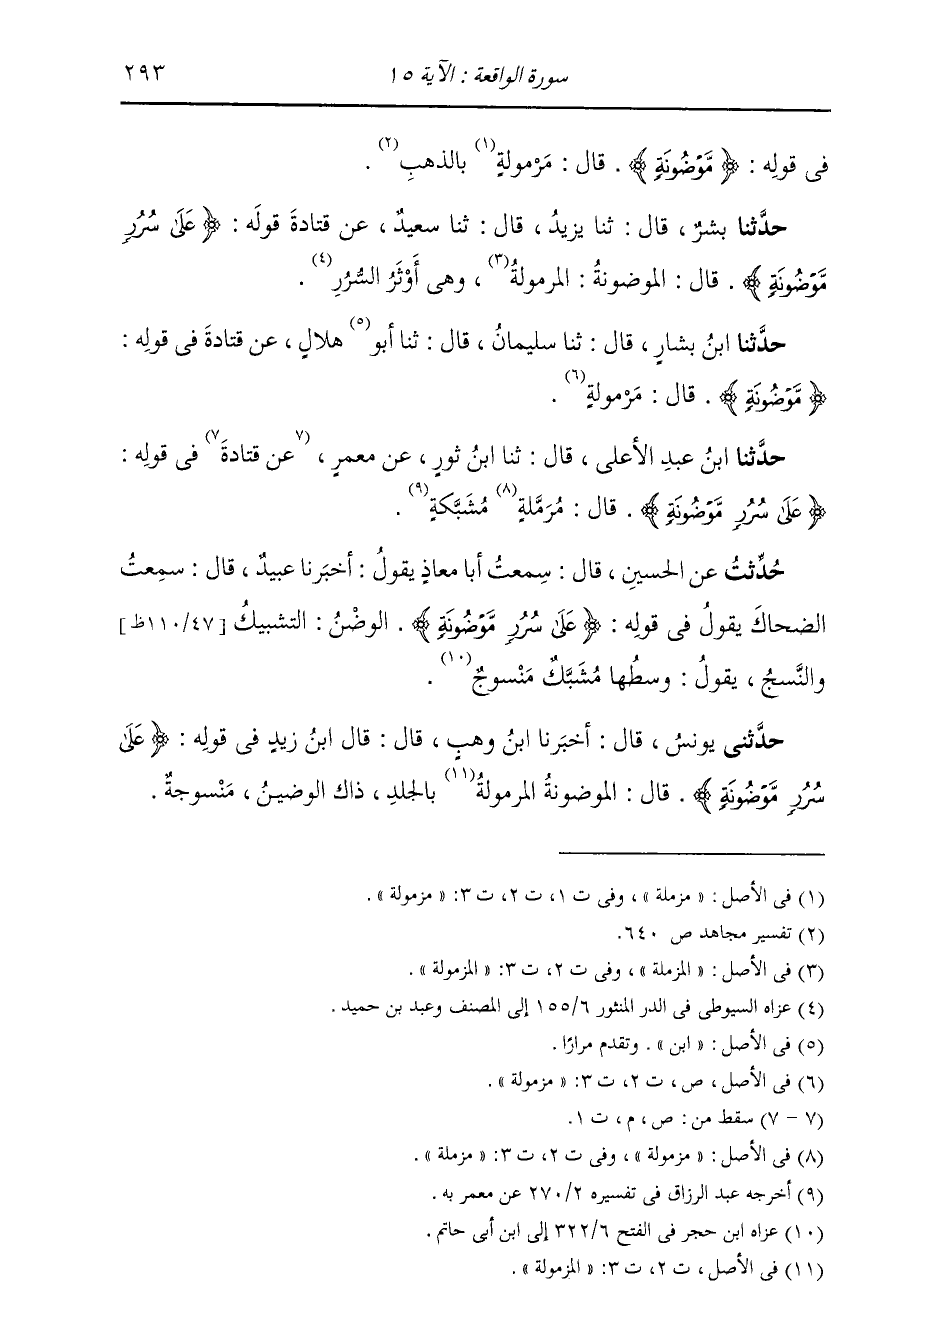 سورة الواقعة : الآية ١٥ ٢٩٣
فى قولِه : ﴿ مَّوْضُونَةٍ ﴾ . قال : مَرْمولةٍ(١) بالذهبِ(٢) .
حدَّثنا بشرٌ ، قال : ثنا يزيدُ ، قال : ثنا سعيدٌ ، عن قتادةَ قولَه : ﴿ عَلَىٰ سُرُرٍ
مَّوْضُونَةٍ ﴾ . قال : الموضونةُ : المرمولةُ(٣) ، وهى أَوْثَرُ السُّرُرِ(٤) .
حدَّثنا ابنُ بشارٍ ، قال : ثنا سليمانُ ، قال : ثنا أبو(٥) هلالٍ ، عن قتادةَ فى قولِه :
﴿ مَّوْضُونَةٍ ﴾ . قال : مَرْمولةٍ(٦) .
حدَّثنا ابنُ عبدِ الأعلى ، قال : ثنا ابنُ ثورٍ ، عن معمرٍ ، (٧عن قتادةَ٧) فى قولِه :
﴿ عَلَىٰ سُرُرٍ مَّوْضُونَةٍ ﴾ . قال : مُرَمَّلةٍ(٨) مُشَبَّكةٍ(٩) .
حُدِّثتُ عن الحسينِ ، قال : سمِعتُ أبا معاذٍ يقولُ : أخبَرنا عبيدٌ ، قال : سمِعتُ
الضحاكَ يقولُ فى قولِه : ﴿ عَلَىٰ سُرُرٍ مَّوْضُونَةٍ ﴾ . الوضْنُ : التشبيكُ [١١٠/٤٧ظ]
والنَّسجُ ، يقولُ : وسطُها مُشَبَّكٌ مَنْسوجٌ(١٠) .
حدَّثنى يونسُ ، قال : أخبَرنا ابنُ وهبٍ ، قال : قال ابنُ زيدٍ فى قولِه : ﴿ عَلَىٰ
سُرُرٍ مَّوْضُونَةٍ ﴾ . قال : الموضونةُ المرمولةُ(١١) بالجلدِ ، ذاك الوضينُ ، مَنْسوجةٌ .
(١) فى الأصل : « مزملة » ، وفى ت ١، ت ٢، ت ٣: « مزمولة » .
(٢) تفسير مجاهد ص ٦٤٠.
(٣) فى الأصل : « المزملة » ، وفى ت ٢، ت ٣: « المزمولة » .
(٤) عزاه السيوطى فى الدر المنثور ١٥٥/٦ إلى المصنف وعبد بن حميد .
(٥) فى الأصل : « ابن » . وتقدم مرارًا .
(٦) فى الأصل ، ص ، ت ٢، ت ٣: « مزمولة » .
(٧ - ٧) سقط من : ص ، م ، ت ١.
(٨) فى الأصل : « مزمولة » ، وفى ت ٢، ت ٣: « مزملة » .
(٩) أخرجه عبد الرزاق فى تفسيره ٢٧٠/٢ عن معمر به .
(١٠) عزاه ابن حجر فى الفتح ٣٢٢/٦ إلى ابن أبى حاتم .
(١١) فى الأصل ، ت ٢، ت ٣: « المزمولة » .